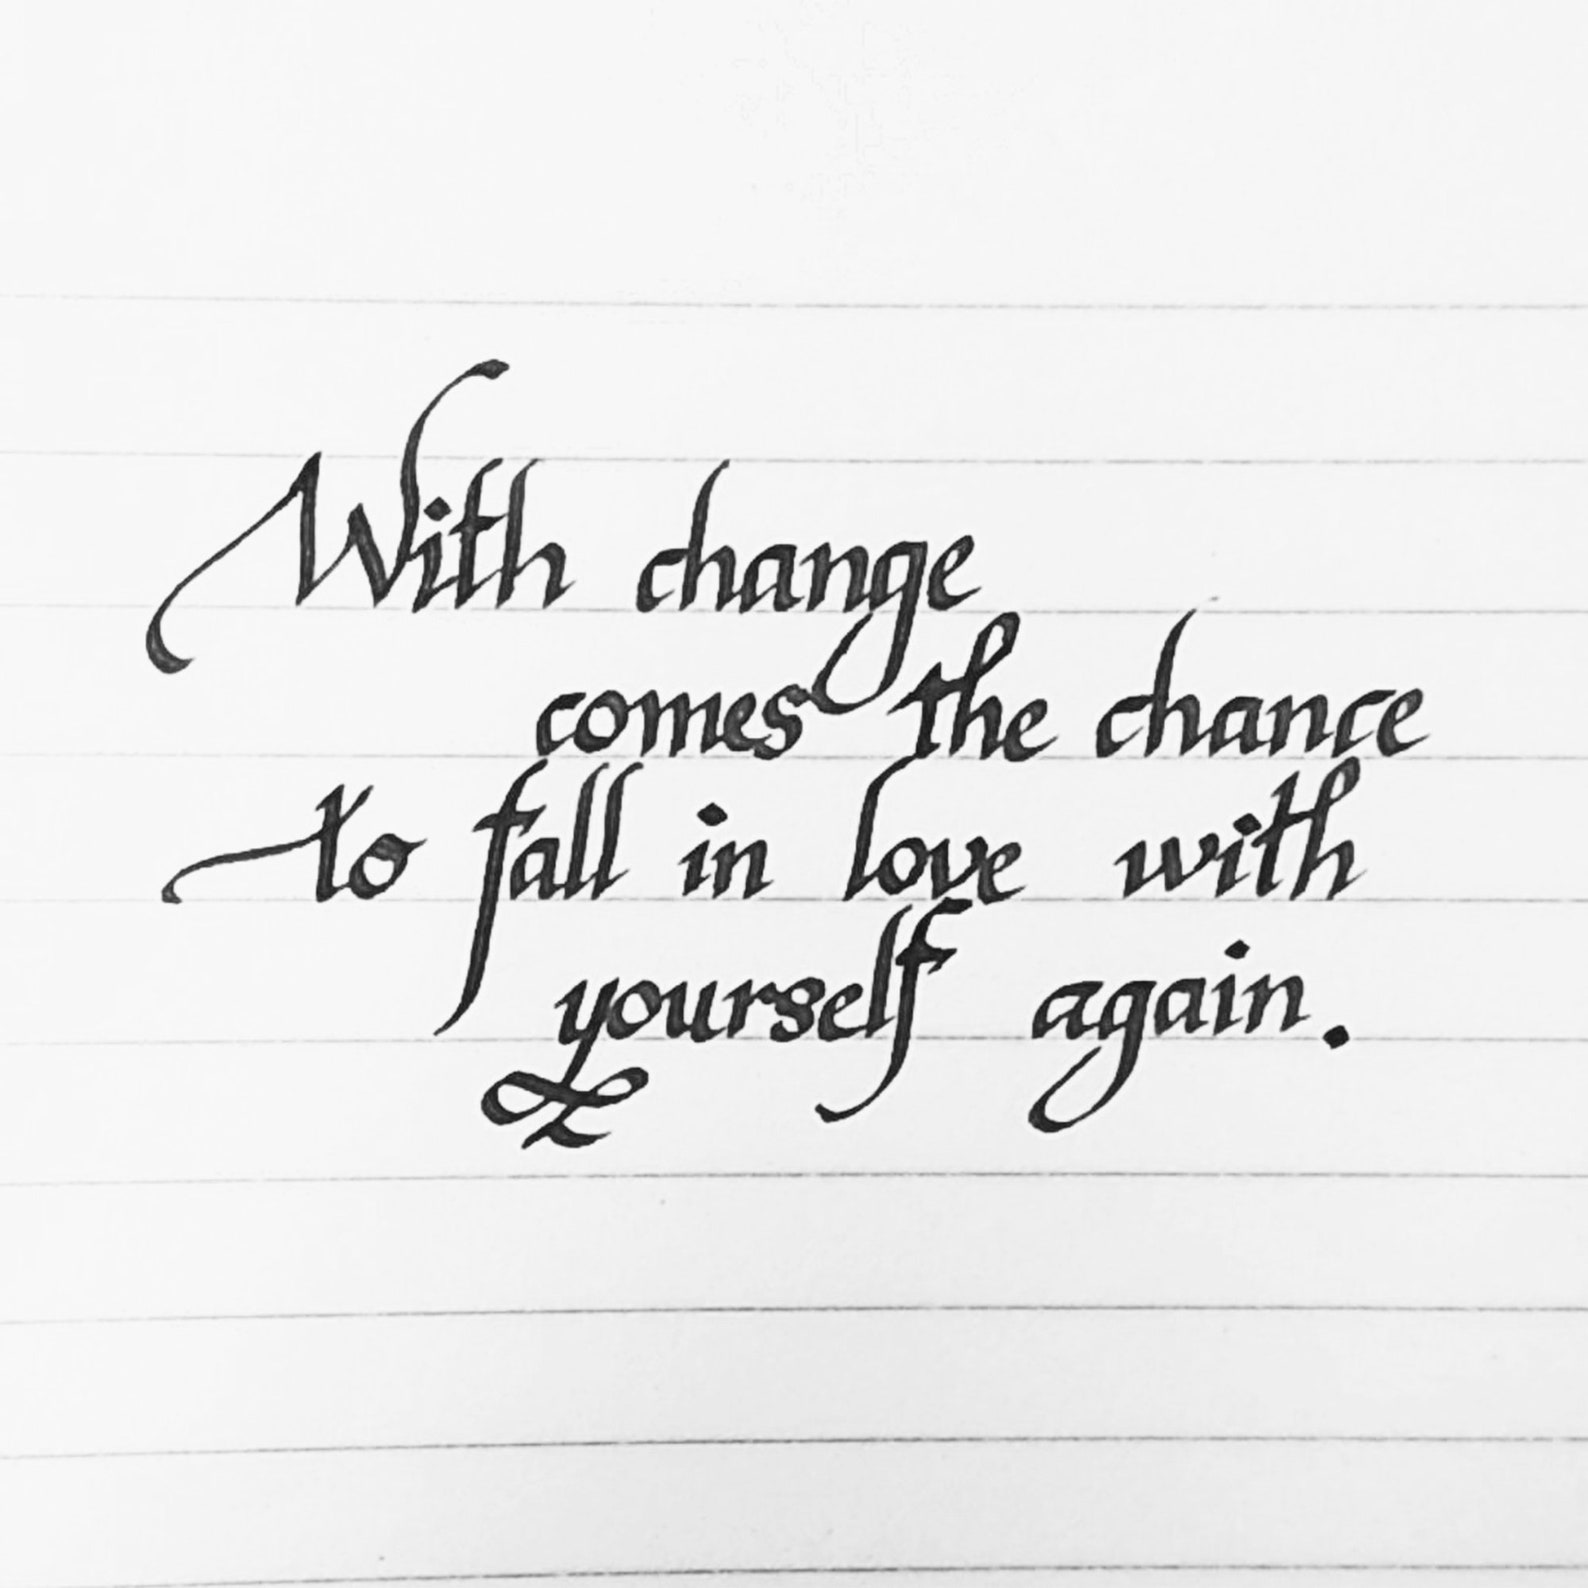 With change
comes the chance
to fall in love with
yourself again.